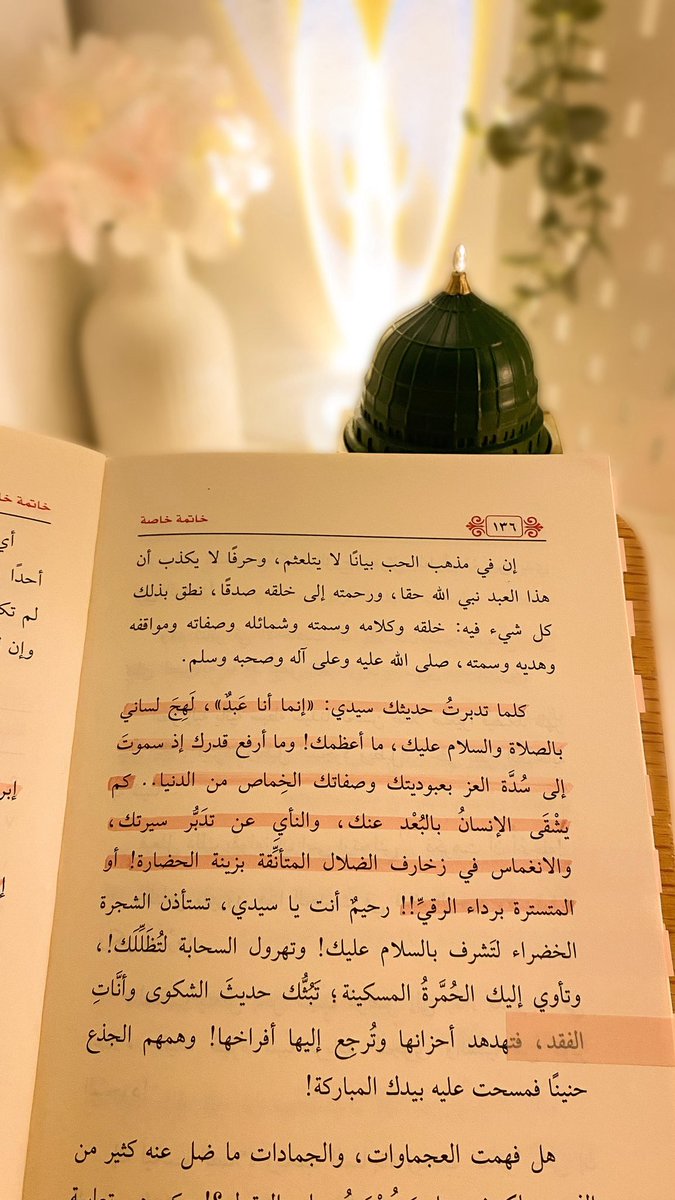 ١٣٦
خاتمة خاصة
إن في مذهب الحب بيانًا لا يتلعثم، وحرفًا لا يكذب أن
هذا العبد نبي الله حقا، ورحمته إلى خلقه صدقًا، نطق بذلك
كل شيء فيه: خلقه وكلامه وسمته وشمائله وصفاته ومواقفه
وهديه وسمته، صلى الله عليه وعلى آله وصحبه وسلم.
كلما تدبرتُ حديثك سيدي: «إنما أنا عَبدٌ»، لَهِجَ لساني
بالصلاة والسلام عليك، ما أعظمك! وما أرفع قدرك إذ سموتَ
إلى سُدَّة العز بعبوديتك وصفاتك الخِماص من الدنيا.. كم
يشْقَى الإنسانُ بالبُعْد عنك، والنأيِ عن تدَبُّر سيرتك،
والانغماس في زخارف الضلال المتأنِّقة بزينة الحضارة! أو
المتسترة برداء الرقيِّ!! رحيمٌ أنت يا سيدي، تستأذن الشجرة
الخضراء لتَشرف بالسلام عليك! وتهرول السحابة لتُظَلِّلَك!،
وتأوي إليك الحُمَّرةُ المسكينة؛ تَبُثُّك حديثَ الشكوى وأنَّاتِ
الفقد، فتهدهد أحزانها وتُرجِع إليها أفراخها! وهمهم الجذع
حنينًا فمسحت عليه بيدك المباركة!
هل فهمت العجماوات، والجمادات ما ضل عنه كثير من
خاتمة
أحدًا